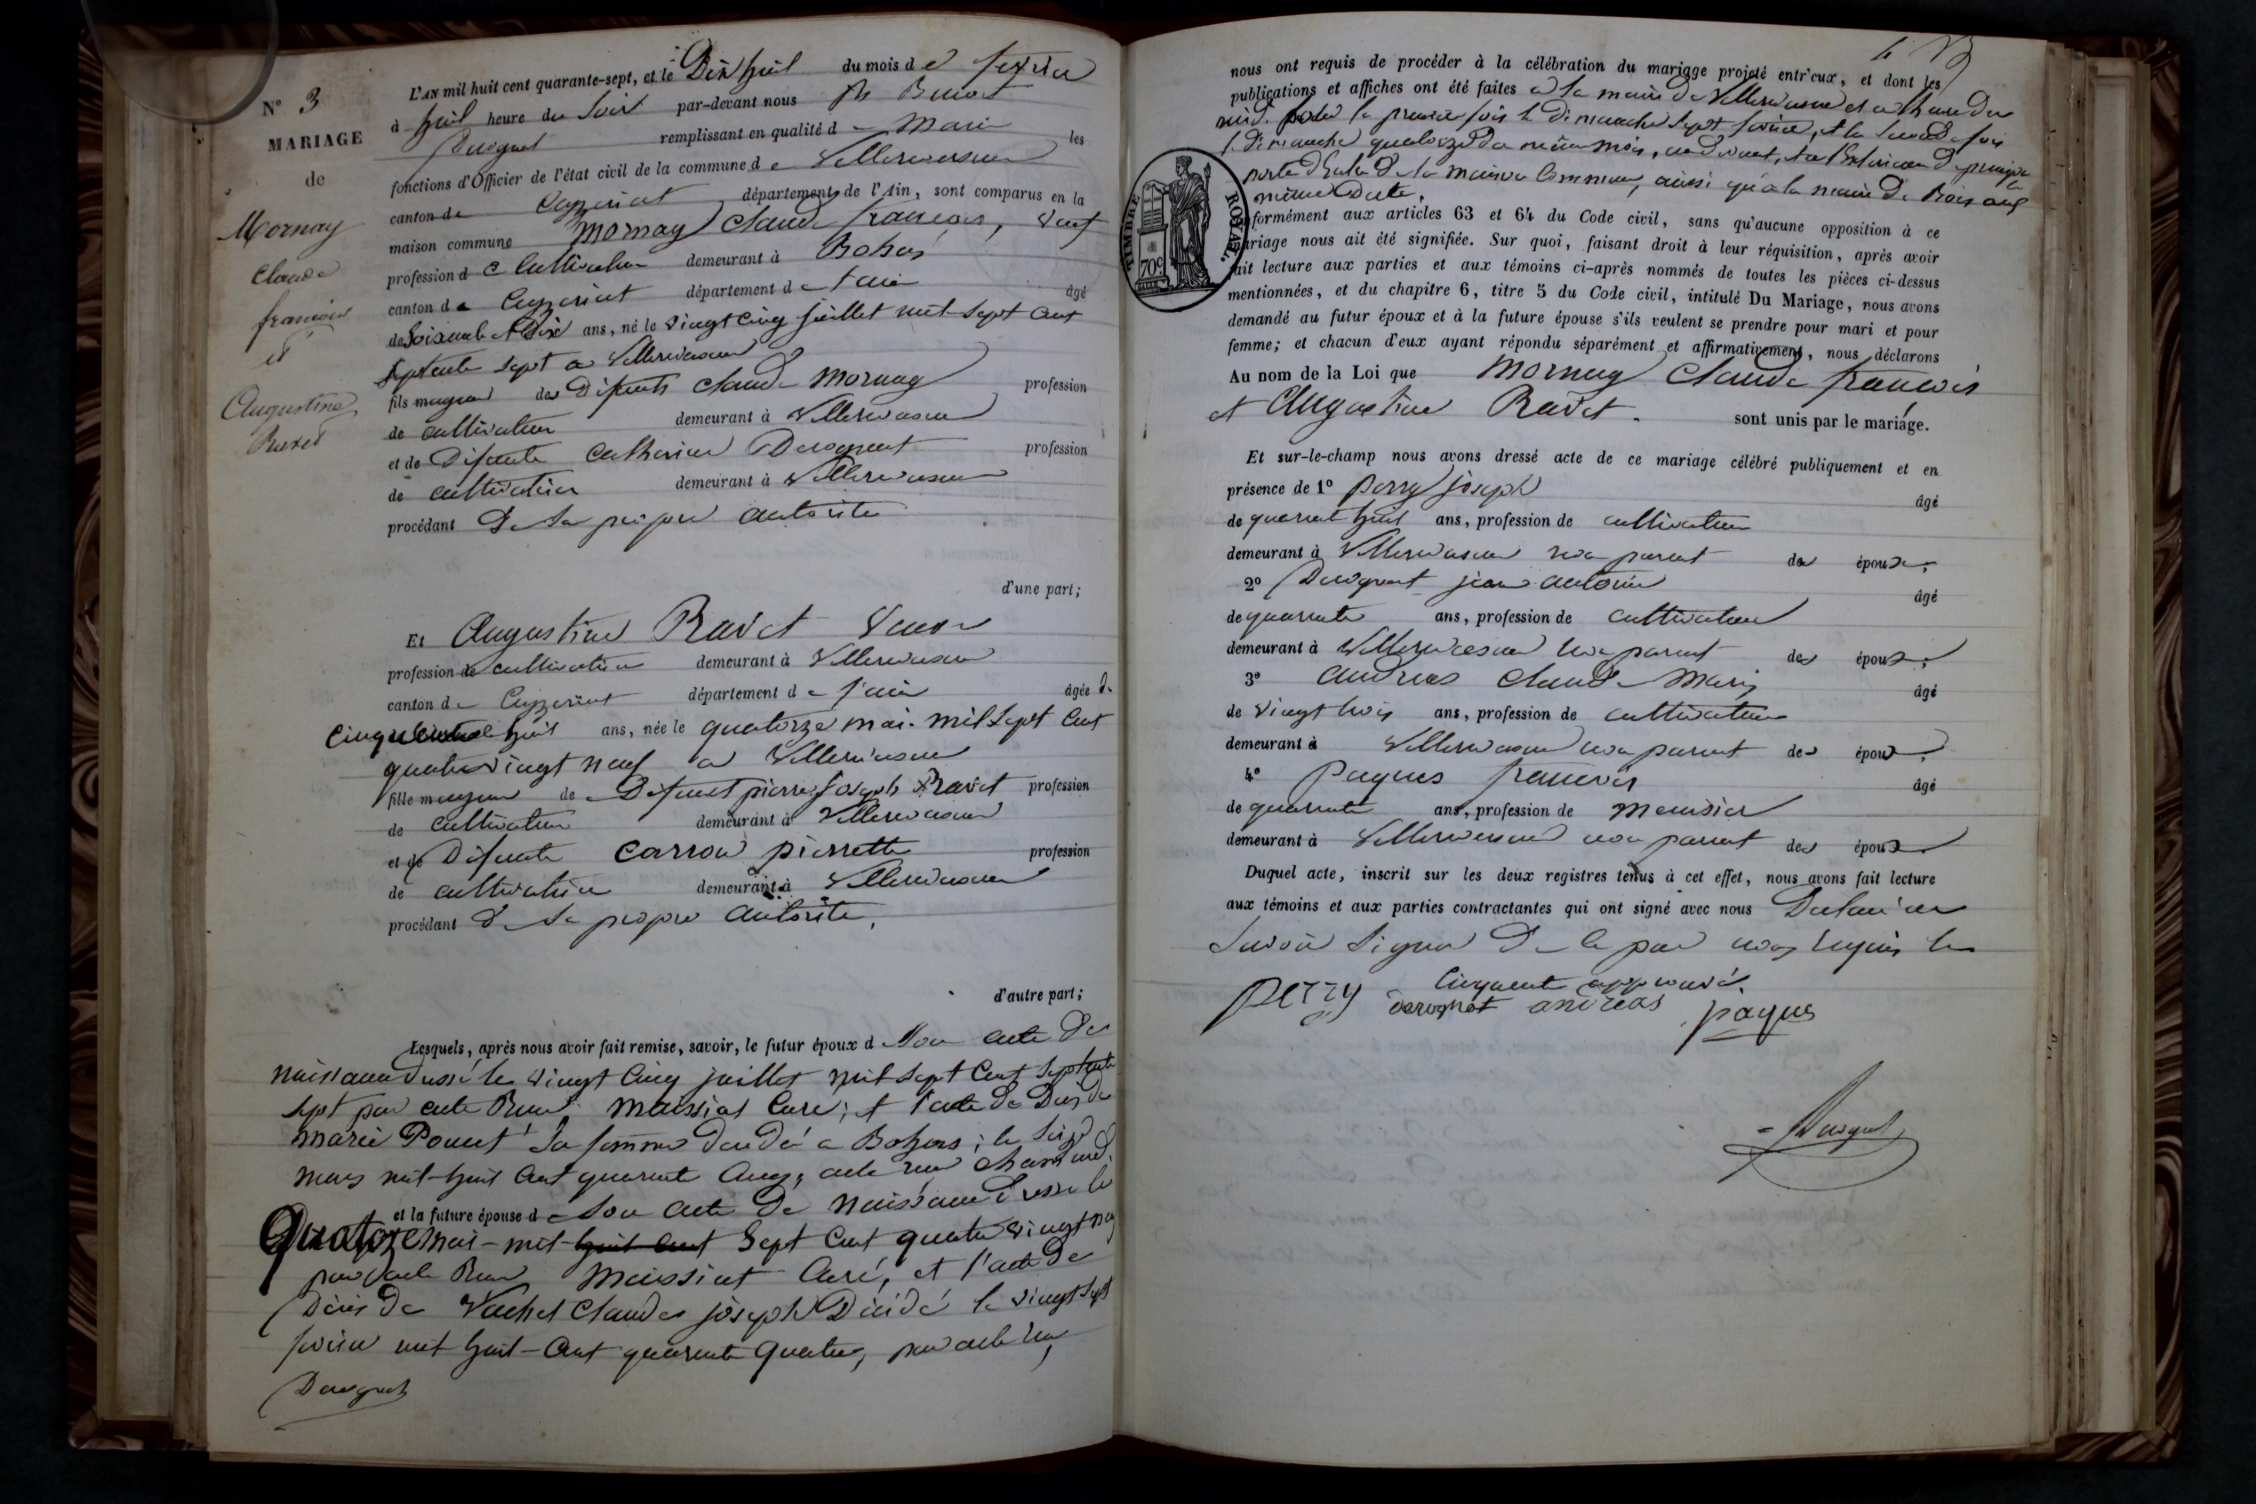 N° 3
MARIAGE
de
Mornay
Claude
françois
et
Augustine
Ravet
L'AN mil huit cent quarante-sept, et le Dix huit du mois de fevrier
à huit heure du Soir par-devant nous Benoit
remplissant en qualité de Maire les
fonctions d'Officier de l'état civil de la commune de Villereversure
canton de Ceyzeriat département de l'Ain, sont comparus en la
maison commune Mornay Claude françois, veuf
profession de Cultivateur demeurant à Bohas
canton de Ceyzeriat département de l'ain âgé
de Soixante et Dix ans, né le vingt cinq juillet mil sept cent
septente sept a Villereversure
fils majeur des Defunts Claude Mornay profession
de cultivateur demeurant à Villereversure
et de Defunte Catherine profession
de cultivatrice demeurant à Villereversure
procédant De sa propre autorité
d'une part;
Et Augustine Ravet veuve
profession de cultivatrice demeurant à Villereversure
canton de Ceyzeriat département de l'ain âgée de
cinquante huit ans, née le quatorze mai mil sept cent
quatre vingt neuf a Villereversure
fille majeure de Defunt pierre joseph Ravet profession
de cultivateur demeurant à Villereversure
et de Defunte Carron pierrette profession
de cultivatrice demeurant à Villereversure
procédant de sa propre autorité,
d'autre part;
Lesquels, après nous avoir fait remise, savoir, le futur époux de son acte de
naissance dressé le vingt cinq juillet mil sept cent septente
sept par acte Reçu Maissiat Curé; et l'acte de Décès de
Marie sa femme décédé a Bohas; le
mars mil huit cent quarente cinq, acte reçu
et la future épouse de son acte de naissance dressé le
Quatorze mai mil huit cent sept cent quatre vingt neuf
par acte Reçu Maissiat Curé, et l'acte de
Décès de Vachet Claude joseph Décédé le vingt sept
fevrier mil huit cent quarente quatre, par acte reçu
nous ont requis de procéder à la célébration du mariage projeté entr'eux, et dont les
publications et affiches ont été faites a la mairie de Villereversure et a heure de
midi la premiere fois le dimanche sept fevrier, et la seconde fois
le dimanche quatorze du même mois, au devant, et a l'exterieur de principale
porte d'entré de la maison Commune, ainsi qu'a la mairie de Bohas aux
même date.
formément aux articles 63 et 64 du Code civil, sans qu'aucune opposition à ce
riage nous ait été signifiée. Sur quoi, faisant droit à leur réquisition, après avoir
ait lecture aux parties et aux témoins ci-après nommés de toutes les pièces ci-dessus
mentionnées, et du chapitre 6, titre 5 du Code civil, intitulé Du Mariage, nous avons
demandé au futur époux et à la future épouse s'ils veulent se prendre pour mari et pour
femme; et chacun d'eux ayant répondu séparément et affirmativement, nous déclarons
Au nom de la Loi que Mornay Claude françois
et Augustine Ravet sont unis par le mariage.
Et sur-le-champ nous avons dressé acte de ce mariage célébré publiquement et en
présence de 1° perry joseph âgé
de quarente huit ans, profession de cultivateur
demeurant à Villereversure non parent des époux;
2° jean antoine âgé
de quarente ans, profession de cultivateur
demeurant à Villereversure non parent des époux;
3° andreas Claude Marie âgé
de vingt trois ans, profession de cultivateur
demeurant à Villereversure non parent des époux;
4° Paques francois âgé
de quarente ans, profession de menuisier
demeurant à Villereversure non parent des époux
Duquel acte, inscrit sur les deux registres tenus à cet effet, nous avons fait lecture
aux témoins et aux parties contractantes qui ont signé avec nous
savoir signer de ce par nous requis
cinquante approuvé.
perry derognat andreas paques
TIMBRE ROYAL.
70c